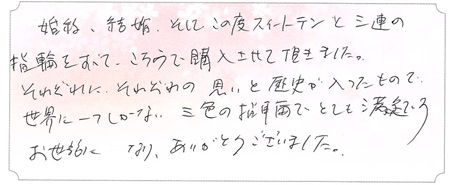 婚約、結婚、そしてこの度スィートテンと三連の
指輪をすべて、こちらで購入させて頂きました。
それぞれに、それぞれの思いと歴史が入ったもので
世界に一つしかない三色の指輪でとても満足です
お世話になり、ありがとうございました。